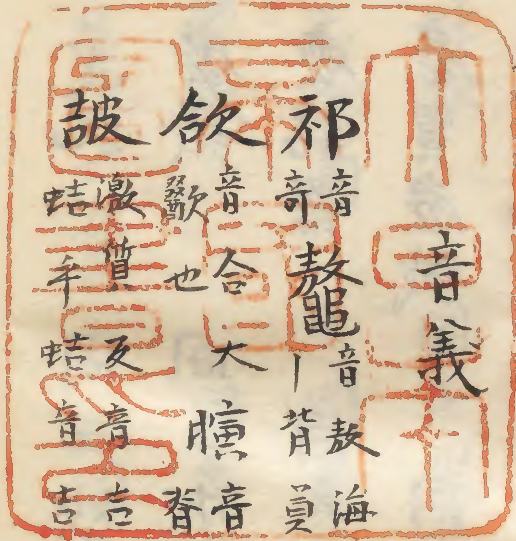 音義
祁音奇鼇音敖海丨背員
欱音合大歠也瞚音
激質反音吉蛣手蛣音吉